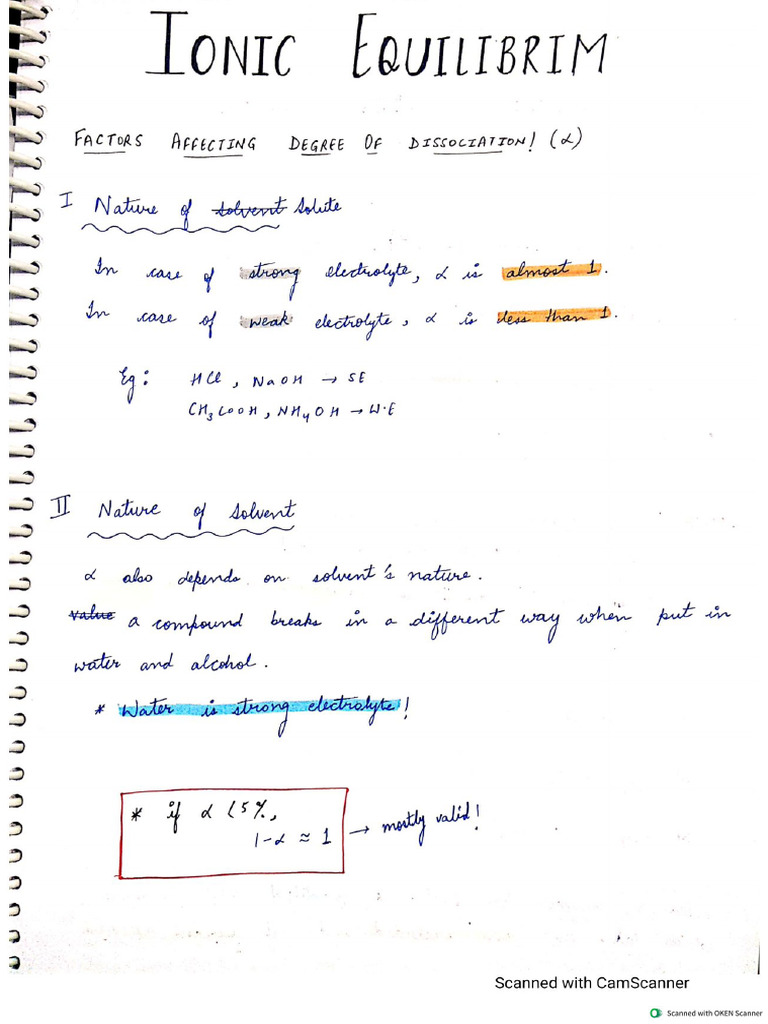 IONIC EQUILIBRIM
FACTORS AFFECTING DEGREE OF DISSOCIATION! (α)
I Nature of solvent solute
In case of strong electrolyte, α is almost 1.
In case of weak electrolyte, α is less than 1.
Eg: HCl, NaOH → SE
CH₃COOH, NH₄OH → W.E
II Nature of solvent
α also depends on solvent's nature.
value a compound breaks in a different way when put in
water and alcohol.
* Water is strong electrolyte!
* if α < 5%,
1-α ≈ 1 → mostly valid!
Scanned with CamScanner
Scanned with OKEN Scanner